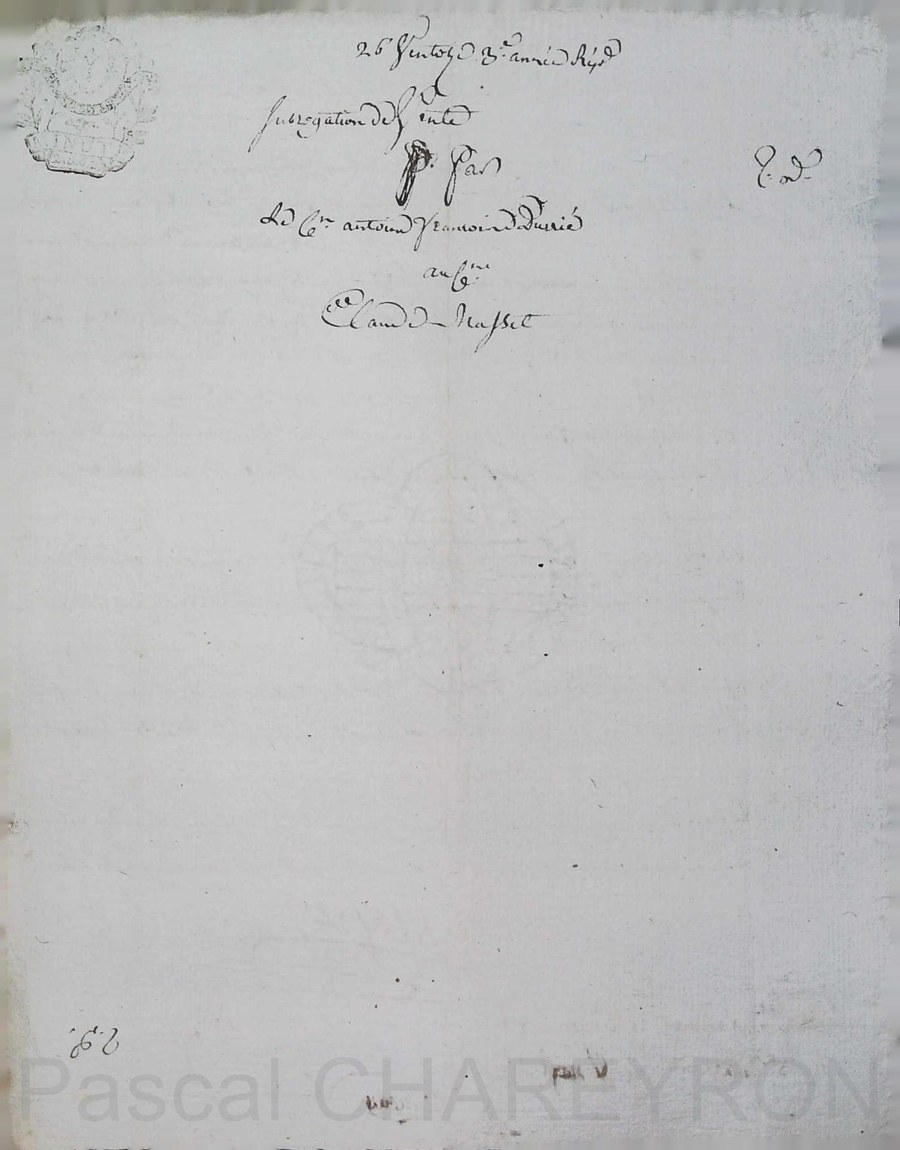 26 Ventose 3.e année Rép.
subrogation de Vente
p.r Par
Le C.en antoine francois Durrié
au C.en
Claude Nasset
Pascal CHAREYRON